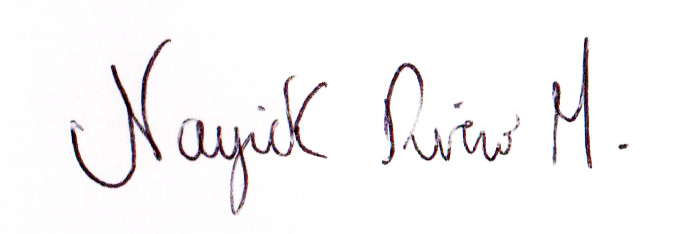 Nayick Rivero M.